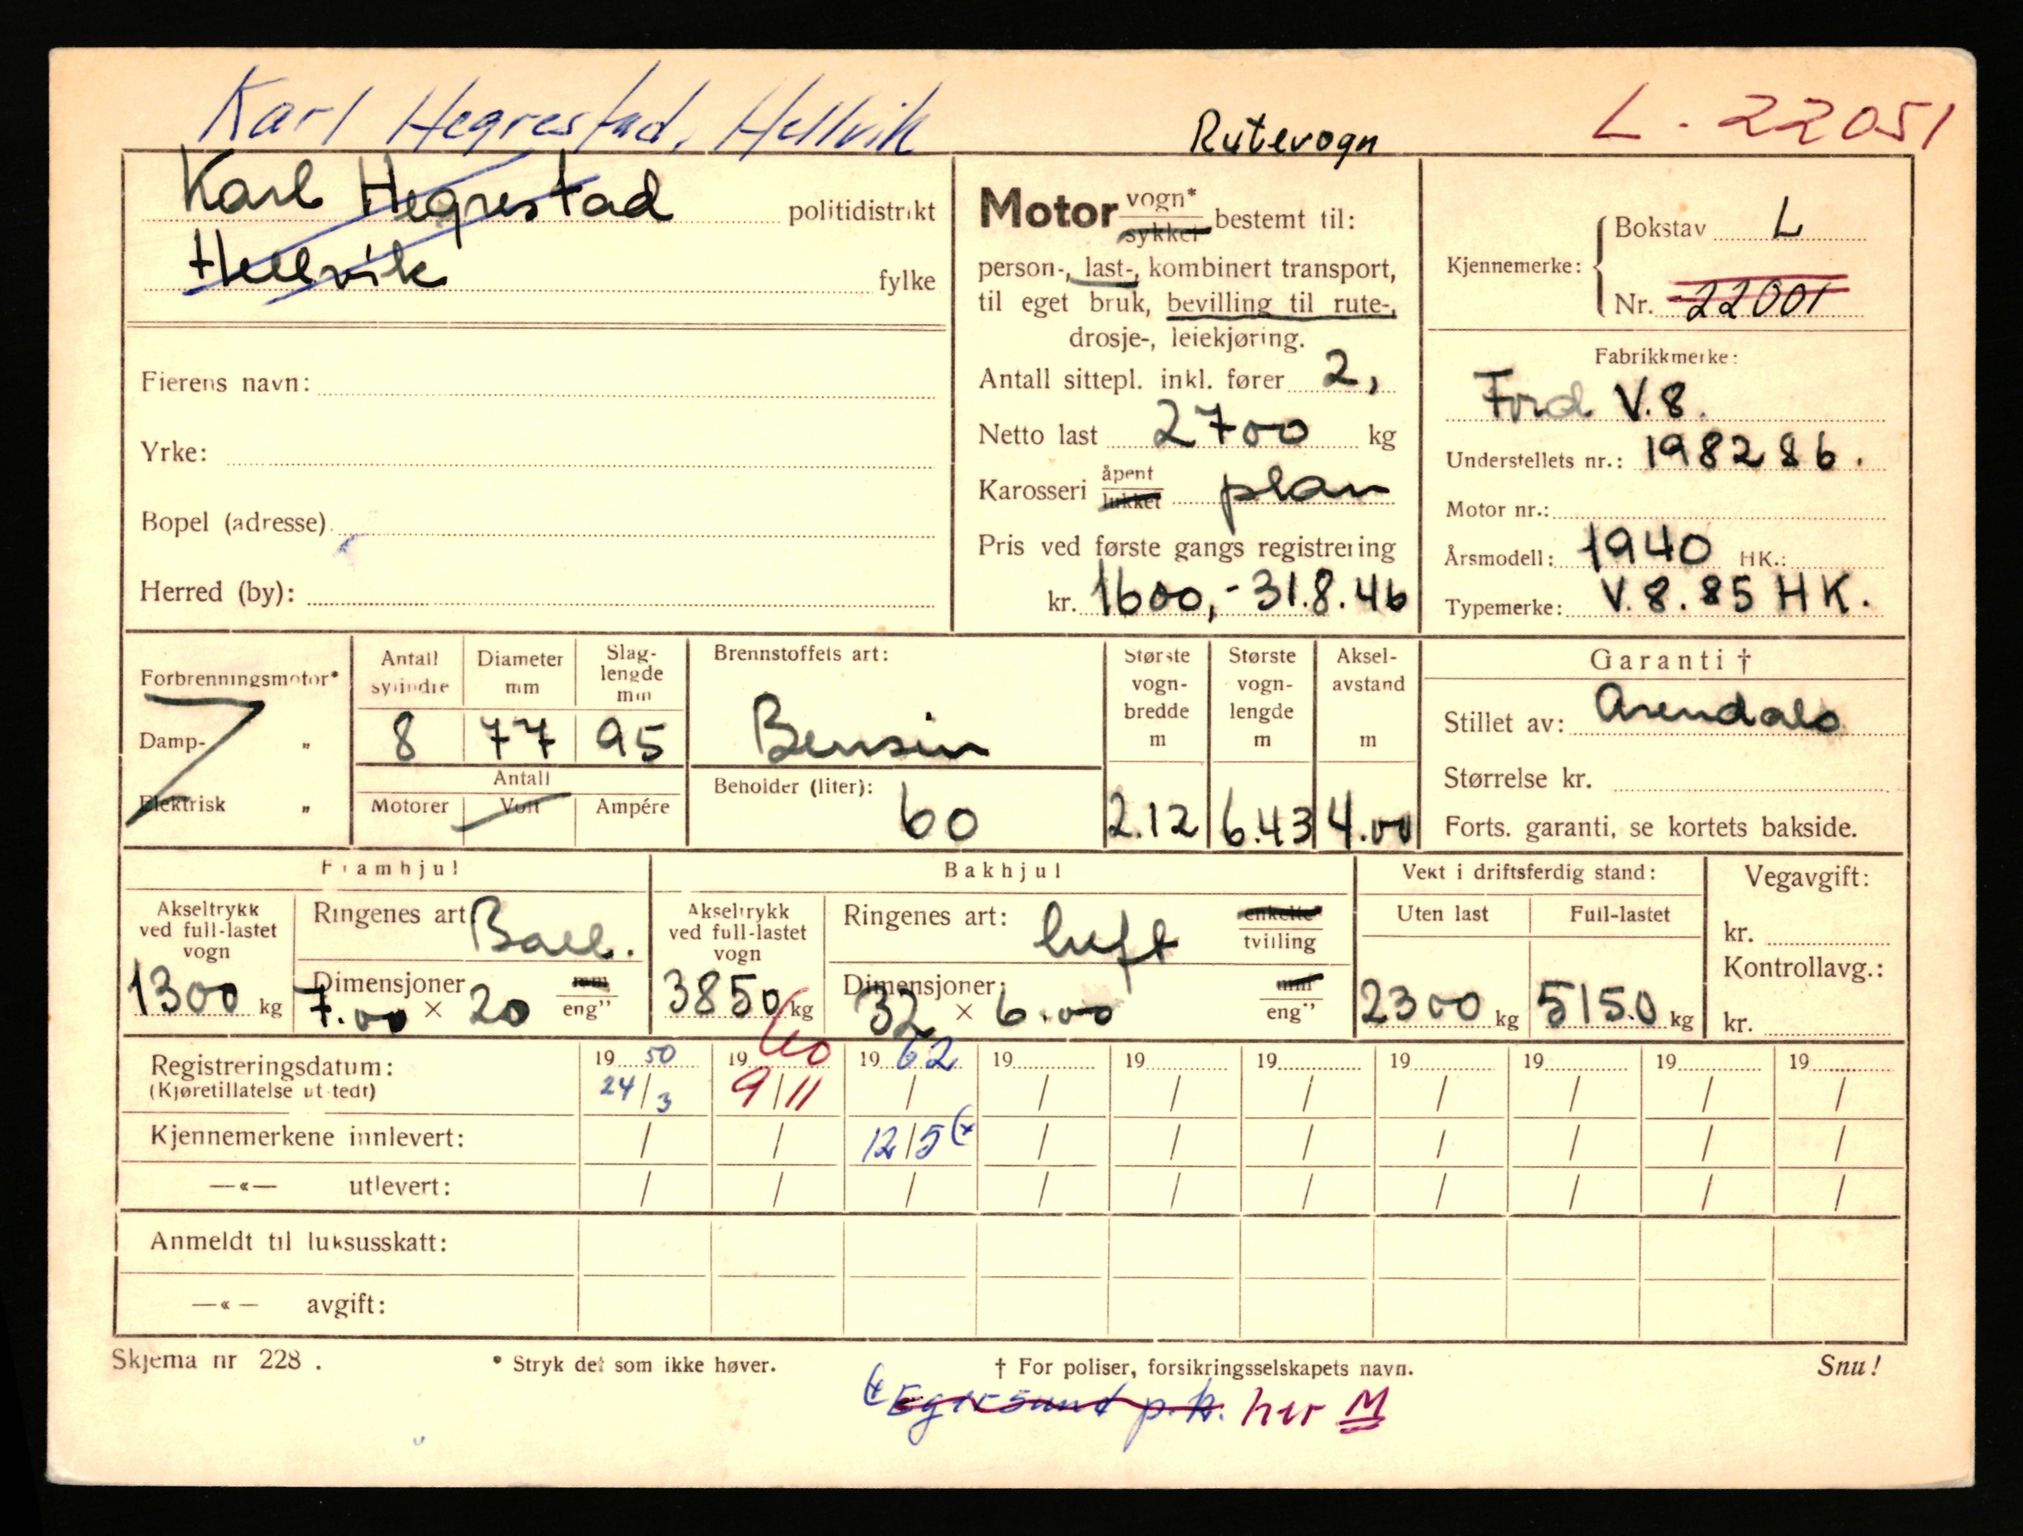 Karl Hegrestad, Hellvik
Rutevogn
L - 22051
Karl Hegrestad politidistrikt
Hellvik fylke
Eierens navn:
Yrke:
Bopel (adresse)
Herred (by):
Motor vogn* sykkel bestemt til:
person-, last-, kombinert transport,
til eget bruk, bevilling til rute-,
drosje-, leiekjøring.
Antall sittepl. inkl. fører 2,
Netto last 2700 kg
Karosseri åpent lukket plan
Pris ved første gangs registrering
kr. 1600,- 31.8.46
Kjennemerke: Bokstav L
Nr. 22001
Fabrikkmerke:
Ford V.8.
Understellets nr.: 198286.
Motor nr.:
Årsmodell: 1940 HK.:
Typemerke: V.8. 85 HK.
Forbrenningsmotor*
Damp- „
Elektrisk „
Antall sylindre 8
Diameter mm 77
Slag-lengde mm 95
Antall
Motorer Volt Ampére
Brennstoffets art:
Bensin
Beholder (liter):
60
Største vogn-bredde m 2.12
Største vogn-lengde m 6.43
Aksel-avstand m 4.00
Garanti †
Stillet av: Arendals
Størrelse kr.
Forts. garanti, se kortets bakside.
Framhjul
Akseltrykk ved full-lastet vogn
1300 kg
Ringenes art Ball.
Dimensjoner mm
7.00 × 20 eng”
Bakhjul
Akseltrykk ved full-lastet vogn
3850 kg
Ringenes art: luft enkelte* tvilling
Dimensjoner: mm
32 × 6.00 eng”
Vekt i driftsferdig stand:
Uten last Full-lastet
2300 kg 5150 kg
Vegavgift:
kr.
Kontrollavg.:
kr.
Registreringsdatum: 19 50 19 60 19 62 19 19 19 19 19 19 19
(Kjøretillatelse utstedt) 24/3 9/11 / / / / / / / /
Kjennemerkene innlevert: / / 12/5 (x / / / / / / /
—«— utlevert: / / / / / / / / / /
Anmeldt til luksusskatt:
—«— avgift:
Skjema nr 228.
* Stryk det som ikke høver.
† For poliser, forsikringsselskapets navn.
Snu!
(x Egersund p.k. her M